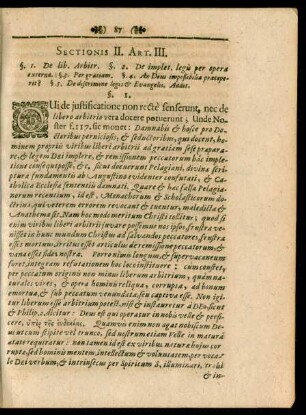 87
SECTIONIS II. ART. III.
§. 1. De lib. Arbitr. §. 2. De implet. legis per opera
externa. §. 3. Per gratiam. §. 4. An Deus impossibilia præcepe-
rit? §. 5. De discrimine legis & Evangelii. Addit.
§. 1.
QUi de justificatione non rectè senserunt, nec de
libero arbitrio vera docere potuerunt; Unde No-
ster f. 117. sic monet: Damnabis & hosce pro Do-
ctoribus perniciosis, & seductoribus, qui docent,
hominem propriis viribus liberi arbitrii ad gratiam sese præpa-
rare, & legem Dei implere, & remissionem peccatorum hac imple-
tione consequi posse, &c, sicut docuerunt Pelagiani, devina scri-
ptura fundamento ab Augustino videntur confutati, & ex
Catholicæ Ecclesiæ sententiis damnati, Quare & hæc falsa Pelagia-
norum recentiorum, id est, Monachorum & Scholasticorum do-
ctrina, qui veterem errorem revocant & tuentur, maledicta &
Anathema sit. Nam hoc modo meritum Christi tollitur; quod si
enim viribus liberi arbitrii juvare possimus nos ipsos, frustra ve-
nisset in hunc mundum Christus ad salvandos peccatores, frustra
esset mortuus, irritus esset articulus de remissione peccatorum, &
vana esset fides nostra. Porrò nimis longum, & supervacaneum
foret, integram refutationem hoc loco instituere: cum constet,
per peccatum originis non minus liberum arbitrium, quàm na-
turales vires, & opera homini reliqua, corrupta, ad bonum
emortua, & sub peccatum venundata, seu captiva esse. Non igi-
tur liberum arbitrium præstò potest est, & instauratur à DEO, sicut
& Philipp. 2. dicitur: Deus est qui operatur in nobis velle & perfi-
cere,
Quamvis enim non agat nobiscum De-
us ut cum stipite vel trunco, sed nostrum etiam Velle in matu-
ratate requiratur: non tamen id est ex viribus natura hujus cor-
rupta, sed homini mentem, intellectum & voluntatem, per voca-
le Dei verbum, & intrinsecùs per Spiritum S. illuminari, trahi
& in-